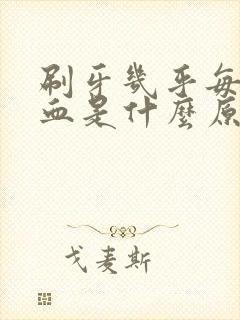 刷牙幾乎每
血是什麼原
戈麦斯